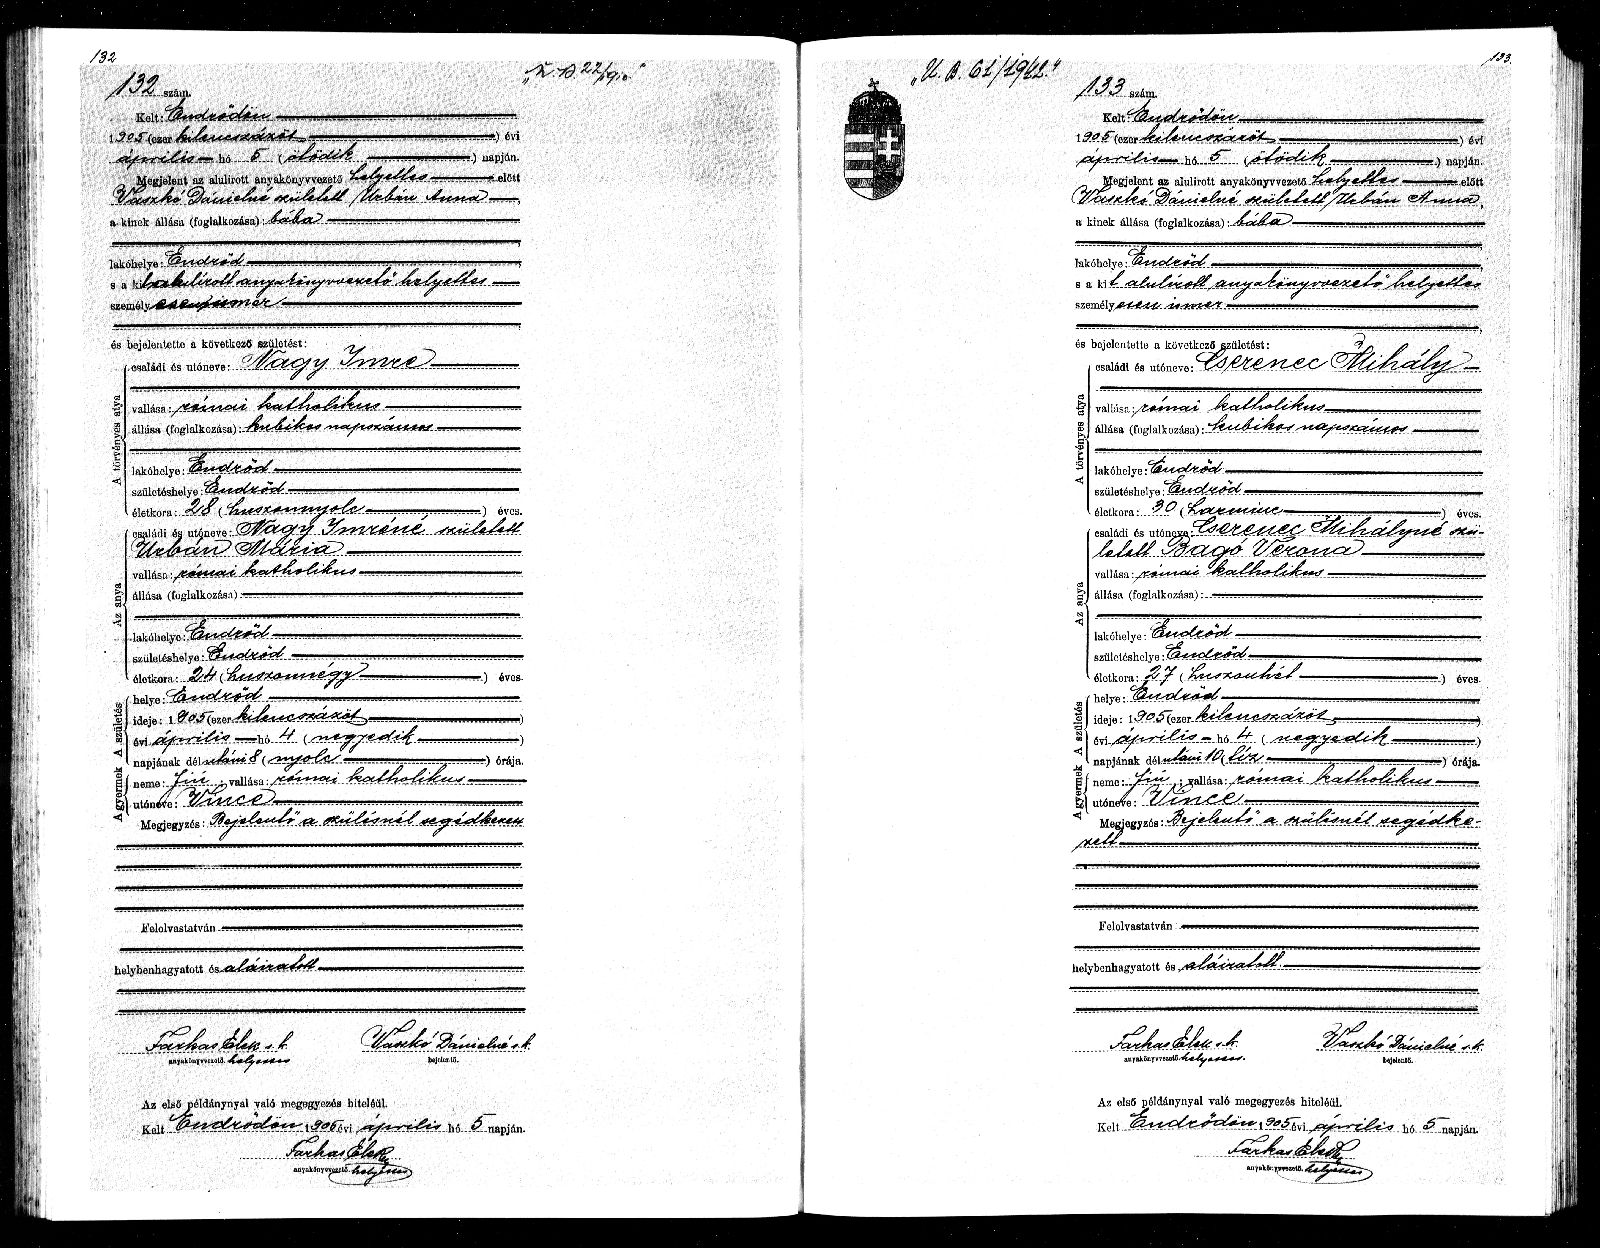 132
132 szám.
Kelt: Endrődön
1905 (ezer kilencszázöt ) évi
április hó 5 (ötödik ) napján.
Megjelent az alulirott anyakönyvvezető helyettes előtt
Vaszkó Dánielné született Urbán Anna,
a kinek állása (foglalkozása): bába
lakóhelye: Endrőd
s a kit alulírott anyakönyvvezető helyettes
személyesen ismer
és bejelentette a következő születést:
A törvényes atya
családi és utóneve: Nagy Imre
vallása: római katholikus
állása (foglalkozása): kubikos napszámos
lakóhelye: Endrőd
születéshelye: Endrőd
életkora: 28 (huszonnyolc ) éves.
Az anya
családi és utóneve: Nagy Imréné született
Urbán Mária
vallása: római katholikus
állása (foglalkozása):
lakóhelye: Endrőd
születéshelye: Endrőd
életkora: 24 (huszonnégy ) éves.
A születés
helye: Endrőd
ideje: 1905 (ezer kilencszázöt )
évi április hó 4 (negyedik )
napjának délutáni 8 (nyolc ) órája.
A gyermek
neme: fiú; vallása: római katholikus
utóneve: Vince
Megjegyzés: Bejelentő a szülésnél segédkezett
Felolvastatván
helybenhagyatott és aláiratott
Farkas Elek s. k. Vaszkó Dánielné s. k.
anyakönyvvezető. helyettes bejelentő.
Az első példánynyal való megegyezés hiteléül.
Kelt Endrődön 1905 évi április hó 5 napján.
Farkas Elek
anyakönyvvezető. helyettes
133.
„U. B. 61/1942."
133 szám.
Kelt: Endrődön
1905 (ezer kilencszázöt ) évi
április hó 5 (ötödik ) napján.
Megjelent az alulirott anyakönyvvezető helyettes előtt
Vaszkó Dánielné született Urbán Anna,
a kinek állása (foglalkozása): bába
lakóhelye: Endrőd
s a kit alulírott anyakönyvvezető helyettes
személyesen ismer
és bejelentette a következő születést:
A törvényes atya
családi és utóneve: Cserenec Mihály
vallása: római katholikus
állása (foglalkozása): kubikos napszámos
lakóhelye: Endrőd
születéshelye: Endrőd
életkora: 30 (harminc ) éves.
Az anya
családi és utóneve: Cserenec Mihályné szü-
letett Bagó Verona
vallása: római katholikus
állása (foglalkozása):
lakóhelye: Endrőd
születéshelye: Endrőd
életkora: 27 (huszonhét ) éves.
A születés
helye: Endrőd
ideje: 1905 (ezer kilencszázöt )
évi április hó 4 (negyedik )
napjának délutáni 10 (tíz ) órája.
A gyermek
neme: fiú; vallása: római katholikus
utóneve: Vince
Megjegyzés: Bejelentő a szülésnél segédke-
zett
Felolvastatván
helybenhagyatott és aláiratott
Farkas Elek s. k. Vaszkó Dánielné s. k.
anyakönyvvezető. helyettes. bejelentő.
Az első példánynyal való megegyezés hiteléül.
Kelt Endrődön 1905 évi április hó 5 napján.
Farkas Elek
anyakönyvvezető. helyettes